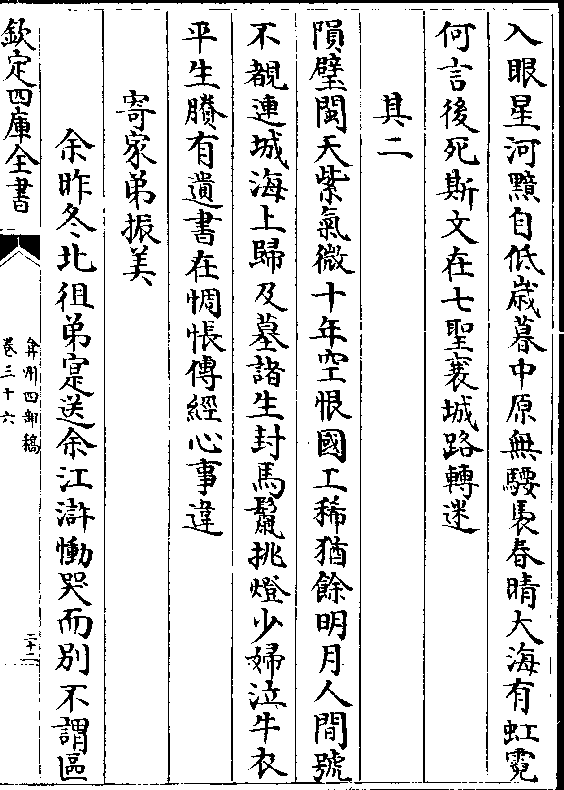 入眼星河黯自低歳暮中原無騕褭春晴大海有虹霓
何言後死斯文在七聖襄城路轉迷
其二
隕璧閩天紫氣微十年空恨國工稀猶餘明月人間號
不覩連城海上歸及墓諸生封馬鬛挑燈少婦泣牛衣
平生賸有遺書在惆悵傳經心事違
寄家弟振美
余昨冬北徂弟寔送余江滸慟哭而别不謂區
欽定四庫全書
弇州四部稿
卷三十六
二十二